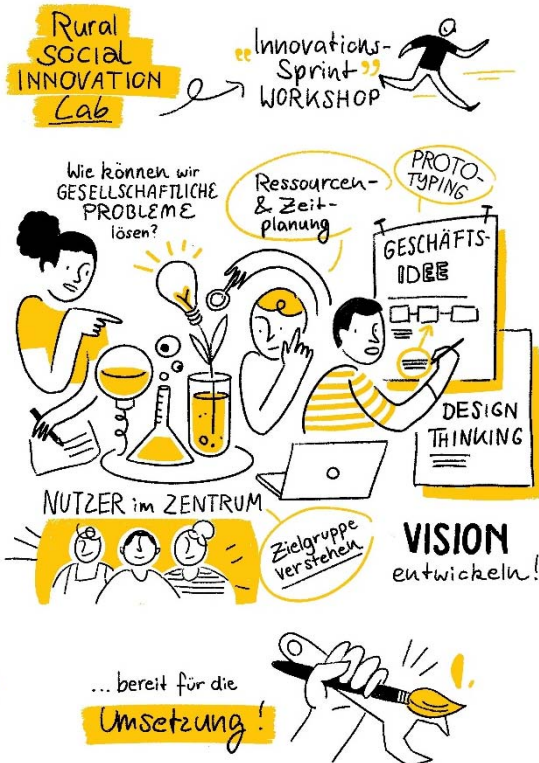 Rural
SOCIAL
INNOVATION
Lab
"Innovations-
Sprint"
WORKSHOP
Wie können wir
GESELLSCHAFTLICHE
PROBLEME
lösen?
Ressourcen-
& Zeit-
planung
PROTO-
TYPING
GESCHÄFTS-
IDEE
DESIGN
THINKING
NUTZER im ZENTRUM
Zielgruppe
verstehen
VISION
entwickeln!
... bereit für die
Umsetzung!